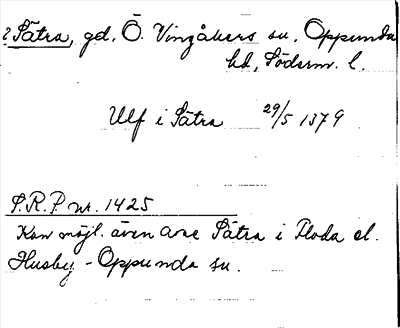 ? Sätra, gd. Ö. Vingåkers sn. Oppunda
hd, Söderm. l.
Ulf i Sätra 29/5 1379
S.R.P. nr. 1425
Kan möjl. även avse Sätra i Floda el.
Husby-Oppunda sn.